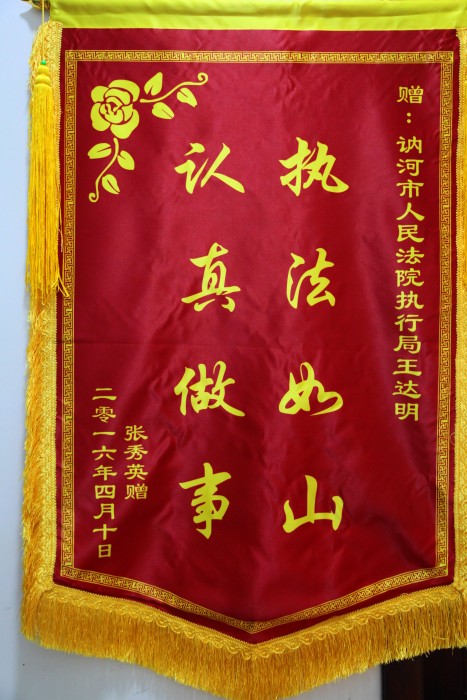 赠：讷河市人民法院执行局王达明
执法如山
认真做事
张秀英赠
二零一六年四月十日